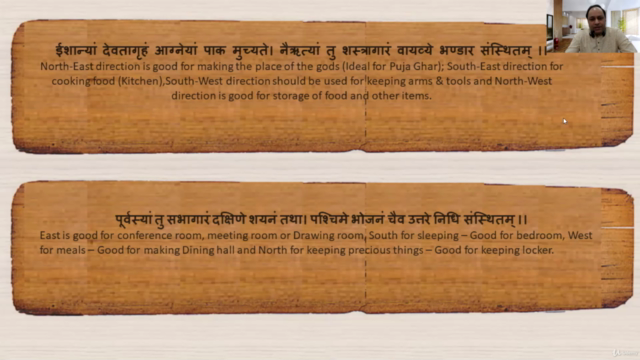 ईशान्यां देवतागृहं आग्नेयां पाक मुच्यते। नैऋत्यां तु शस्त्रागारं वायव्ये भण्डार संस्थितम् ।।
North-East direction is good for making the place of the gods (Ideal for Puja Ghar); South-East direction for
cooking food (Kitchen),South-West direction should be used for keeping arms & tools and North-West
direction is good for storage of food and other items.
पूर्वस्यां तु सभागारं दक्षिणे शयनं तथा। पश्चिमे भोजनं चैव उत्तरे निधि संस्थितम् ।।
East is good for conference room, meeting room or Drawing room, South for sleeping – Good for bedroom, West
for meals – Good for making Dining hall and North for keeping precious things – Good for keeping locker.